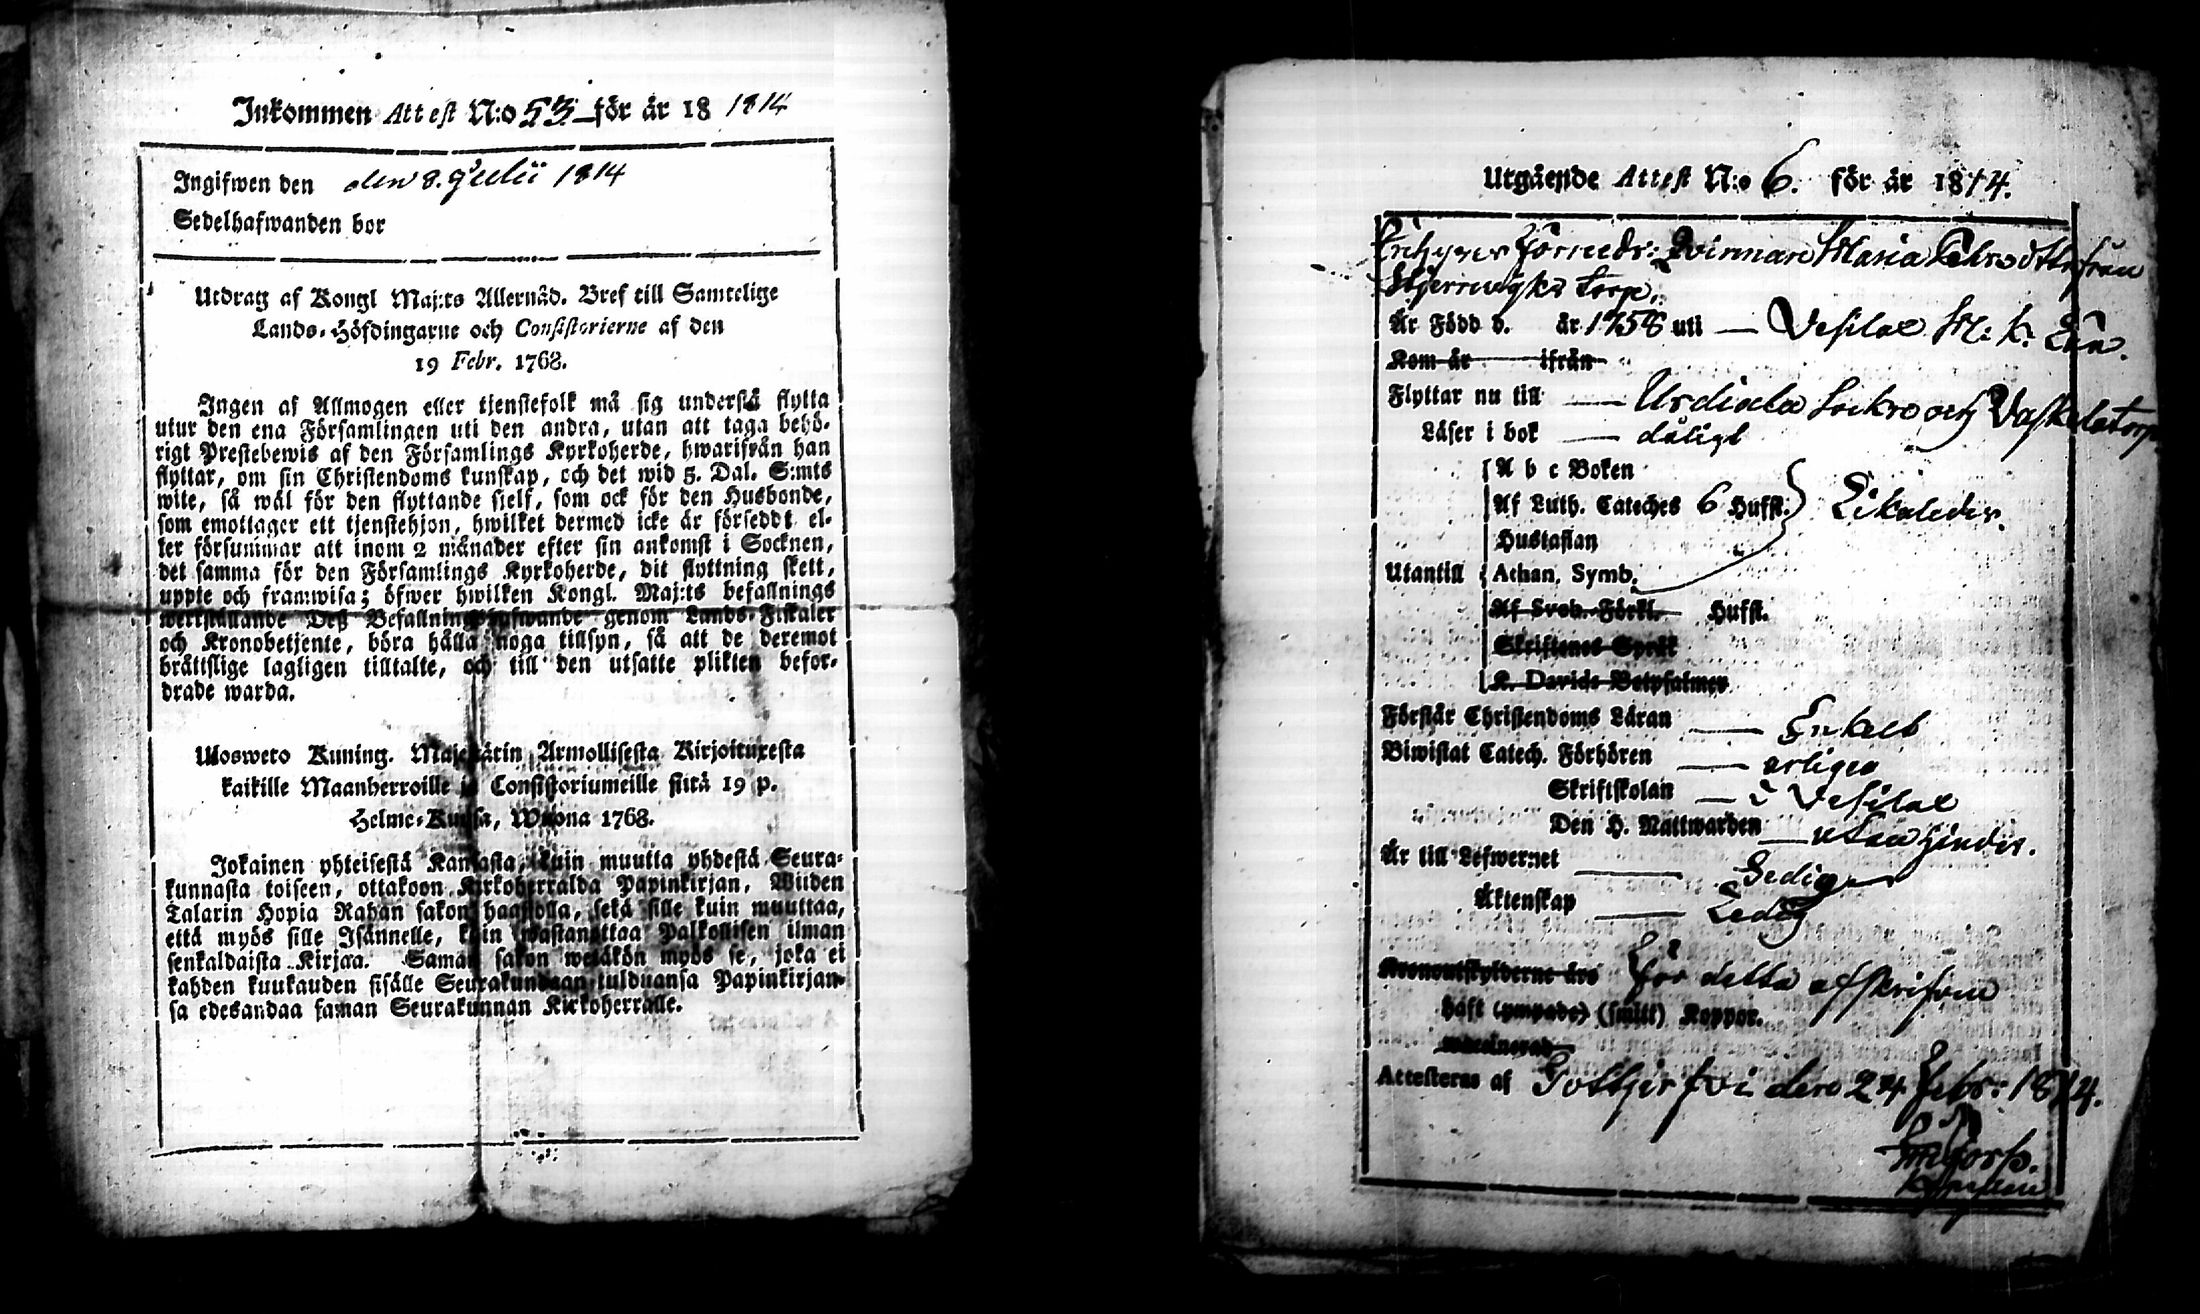 Inkommen Attest N:o 53 för år 18 1814
Ingifwen den den 8. Julii 1814
Sedelhafwanden bor
Utdrag af Kongl Maj:ts Allernåd. Bref till Samtelige
Lands-Höfdingarne och Consistorierne af den
19 Febr. 1768.
Ingen af Allmogen eller tjenstefolk må sig understå flytta
utur den ena Församlingen uti den andra, utan att taga behö-
rigt Prestebewis af den Församlings Kyrkoherde, hwarifrån han
flyttar, om sin Christendoms kunskap, och det wid 5. Dal. S:mts
wite, så wäl för den flyttande sielf, som ock för den Husbonde,
som emottager ett tjenstehjon, hwilket dermed icke är försedt el-
ler försummar att inom 2 månader efter sin ankomst i Socknen,
det samma för den Församlings Kyrkoherde, dit flyttning skett,
uppte och framwisa; öfwer hwilken Kongl. Maj:ts befallnings
werkställande Deß Befallningshafwande genom Lands-Fiskaler
och Kronobetjente, böra hålla noga tillsyn, så att de deremot
bråttslige lagligen tilltalte, och till den utsatte plikten befor-
drade warda.
Ulosweto Kuning. Majestätin Armollisesta Kirjoituxesta
kaikille Maanherroille ja Consistoriumeille siitä 19 p.
Helme-Kuusa, Wuona 1768.
Jokainen yhteisestä Kansasta, kuin muutta yhdestä Seura-
kunnasta toiseen, ottakoon Kirkoherralda Papinkirjan, Wiiden
Talarin Hopia Rahan sakon haastolla, sekä sille kuin muuttaa,
että myös sille Isännelle, kuin wastanottaa Palkollisen ilman
senkaldaista Kirjaa. Saman sakon wetäkön myös se, joka ei
kahden kuukauden sisälle Seurakundaan tulduansa Papinkirjan-
sa edesandaa saman Seurakunnan Kirkoherralle.
Utgående Attest N:o 6. för år 1814.
Qvinnan Maria från
torp.
Är Född d. år 1758 uti — Vesilax
Kom år ifrån
Flyttar nu till — Urdiala Sokn och torp
Läser i bok — dåligt
A b c Boken
Af Luth. Cateches 6 Hufst. Likaledes.
Hustaflan
Utantill Athan. Symb.
Af Sveb. Förkl. Hufst.
Skriftenes Språk
K. Davids Botpsalmer
Förstår Christendoms Läran — Enkelt
Biwistat Catech. Förhören — årligen
Skriftskolan — i Vesilax
Den H. Nattwarden — utan hinder.
Är till Lefwernet — Sedig
Äktenskap — Ledig
Kronoutskylderne års för detta afskrifven
haft (ympade) (smitt) Koppor.
Attesteras af den 24 Febr: 1814.